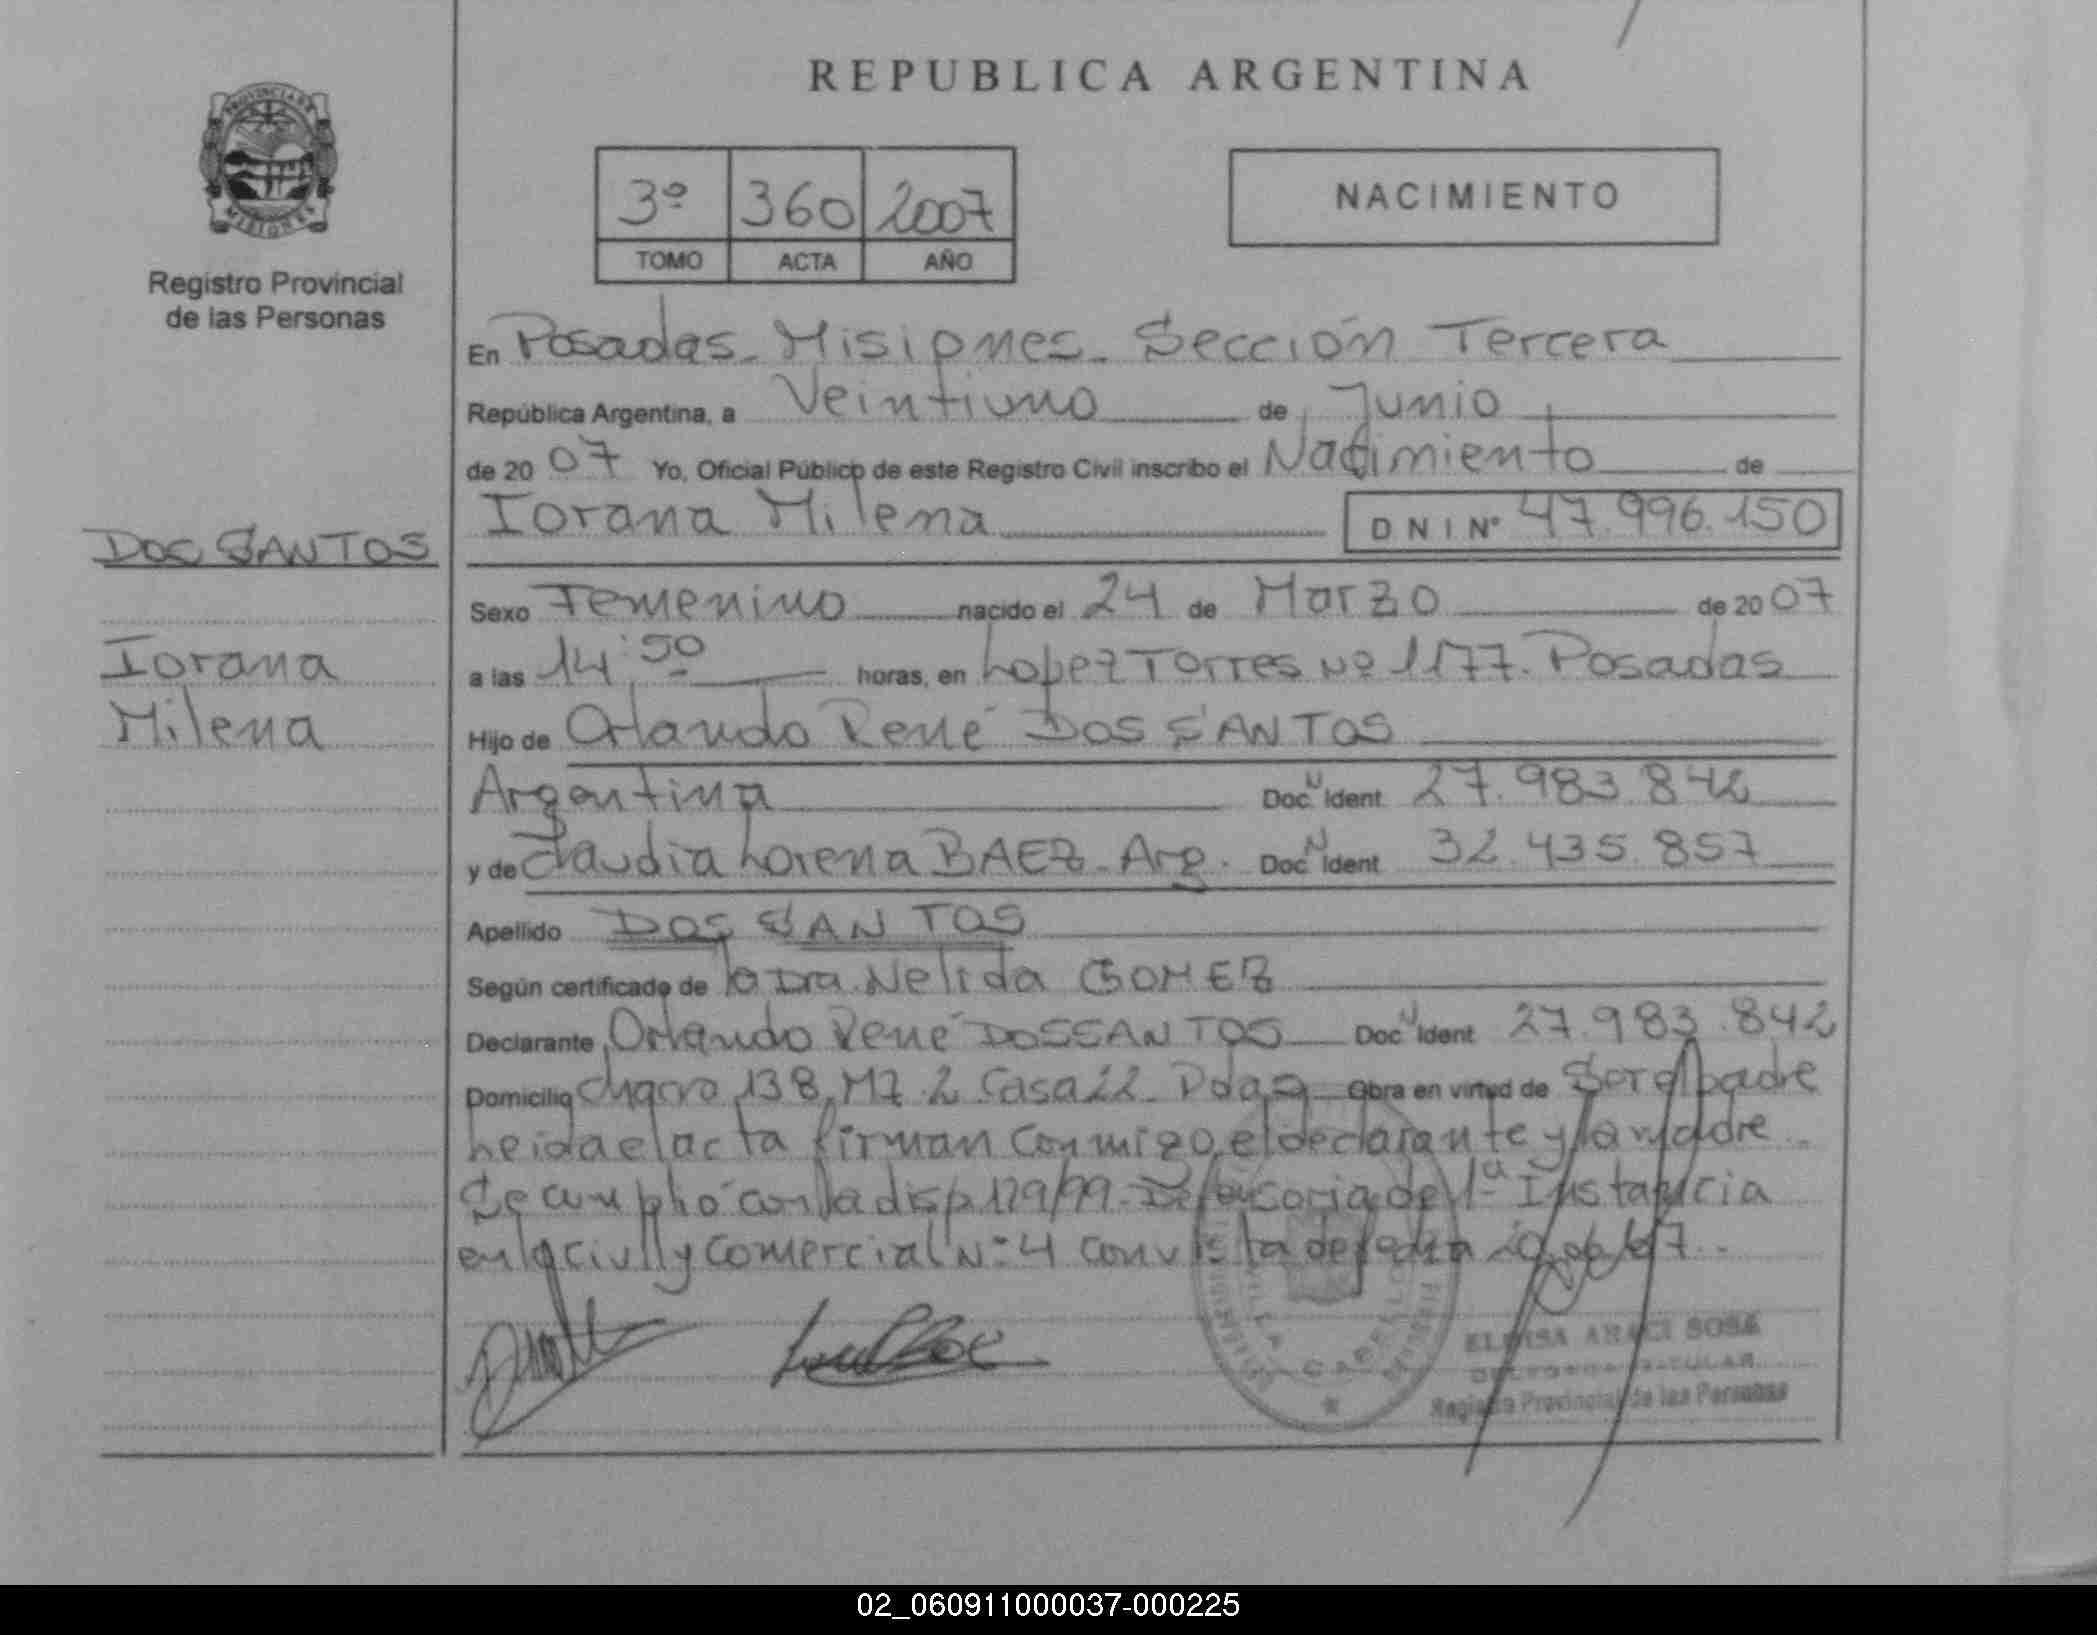 REPUBLICA ARGENTINA
PROVINCIA DE
MISIONES
Registro Provincial
de las Personas
3º 360 2007
TOMO ACTA AÑO
NACIMIENTO
En Posadas - Misiones - Sección Tercera
República Argentina, a Veintiuno de Junio
de 20 07 Yo, Oficial Público de este Registro Civil inscribo el Nacimiento de
Iorana Milena DNI Nº 47.996.150
DOS SANTOS
Iorana
Milena
Sexo Femenino nacido el 24 de Marzo de 20 07
a las 14:50 horas, en Lopez Torres Nº 1177. Posadas
Hijo de Orlando René DOS SANTOS
Argentina Doc N Ident 27.983.842
y de Claudia Lorena BAEZ - Arg. Doc N Ident 32.435.857
Apellido DOS SANTOS
Según certificado de la Dra. Nelida GOMEZ
Declarante Orlando René DOS SANTOS Doc N Ident 27.983.842
Domicilio Chacra 138 MZ. 2 Casa 22 - Pdas Obra en virtud de Ser el padre
leida el acta firman conmigo el declarante y la madre
Se cumplió con la disp 179/99 - Defensoria de 1ª Instancia
en lo civil y comercial Nº 4 con vista de fecha 20/06/07.
ELOISA ARACI SOSA
DELEGADA TITULAR
Registro Provincial de las Personas
VILLA CABELLO
02_060911000037-000225